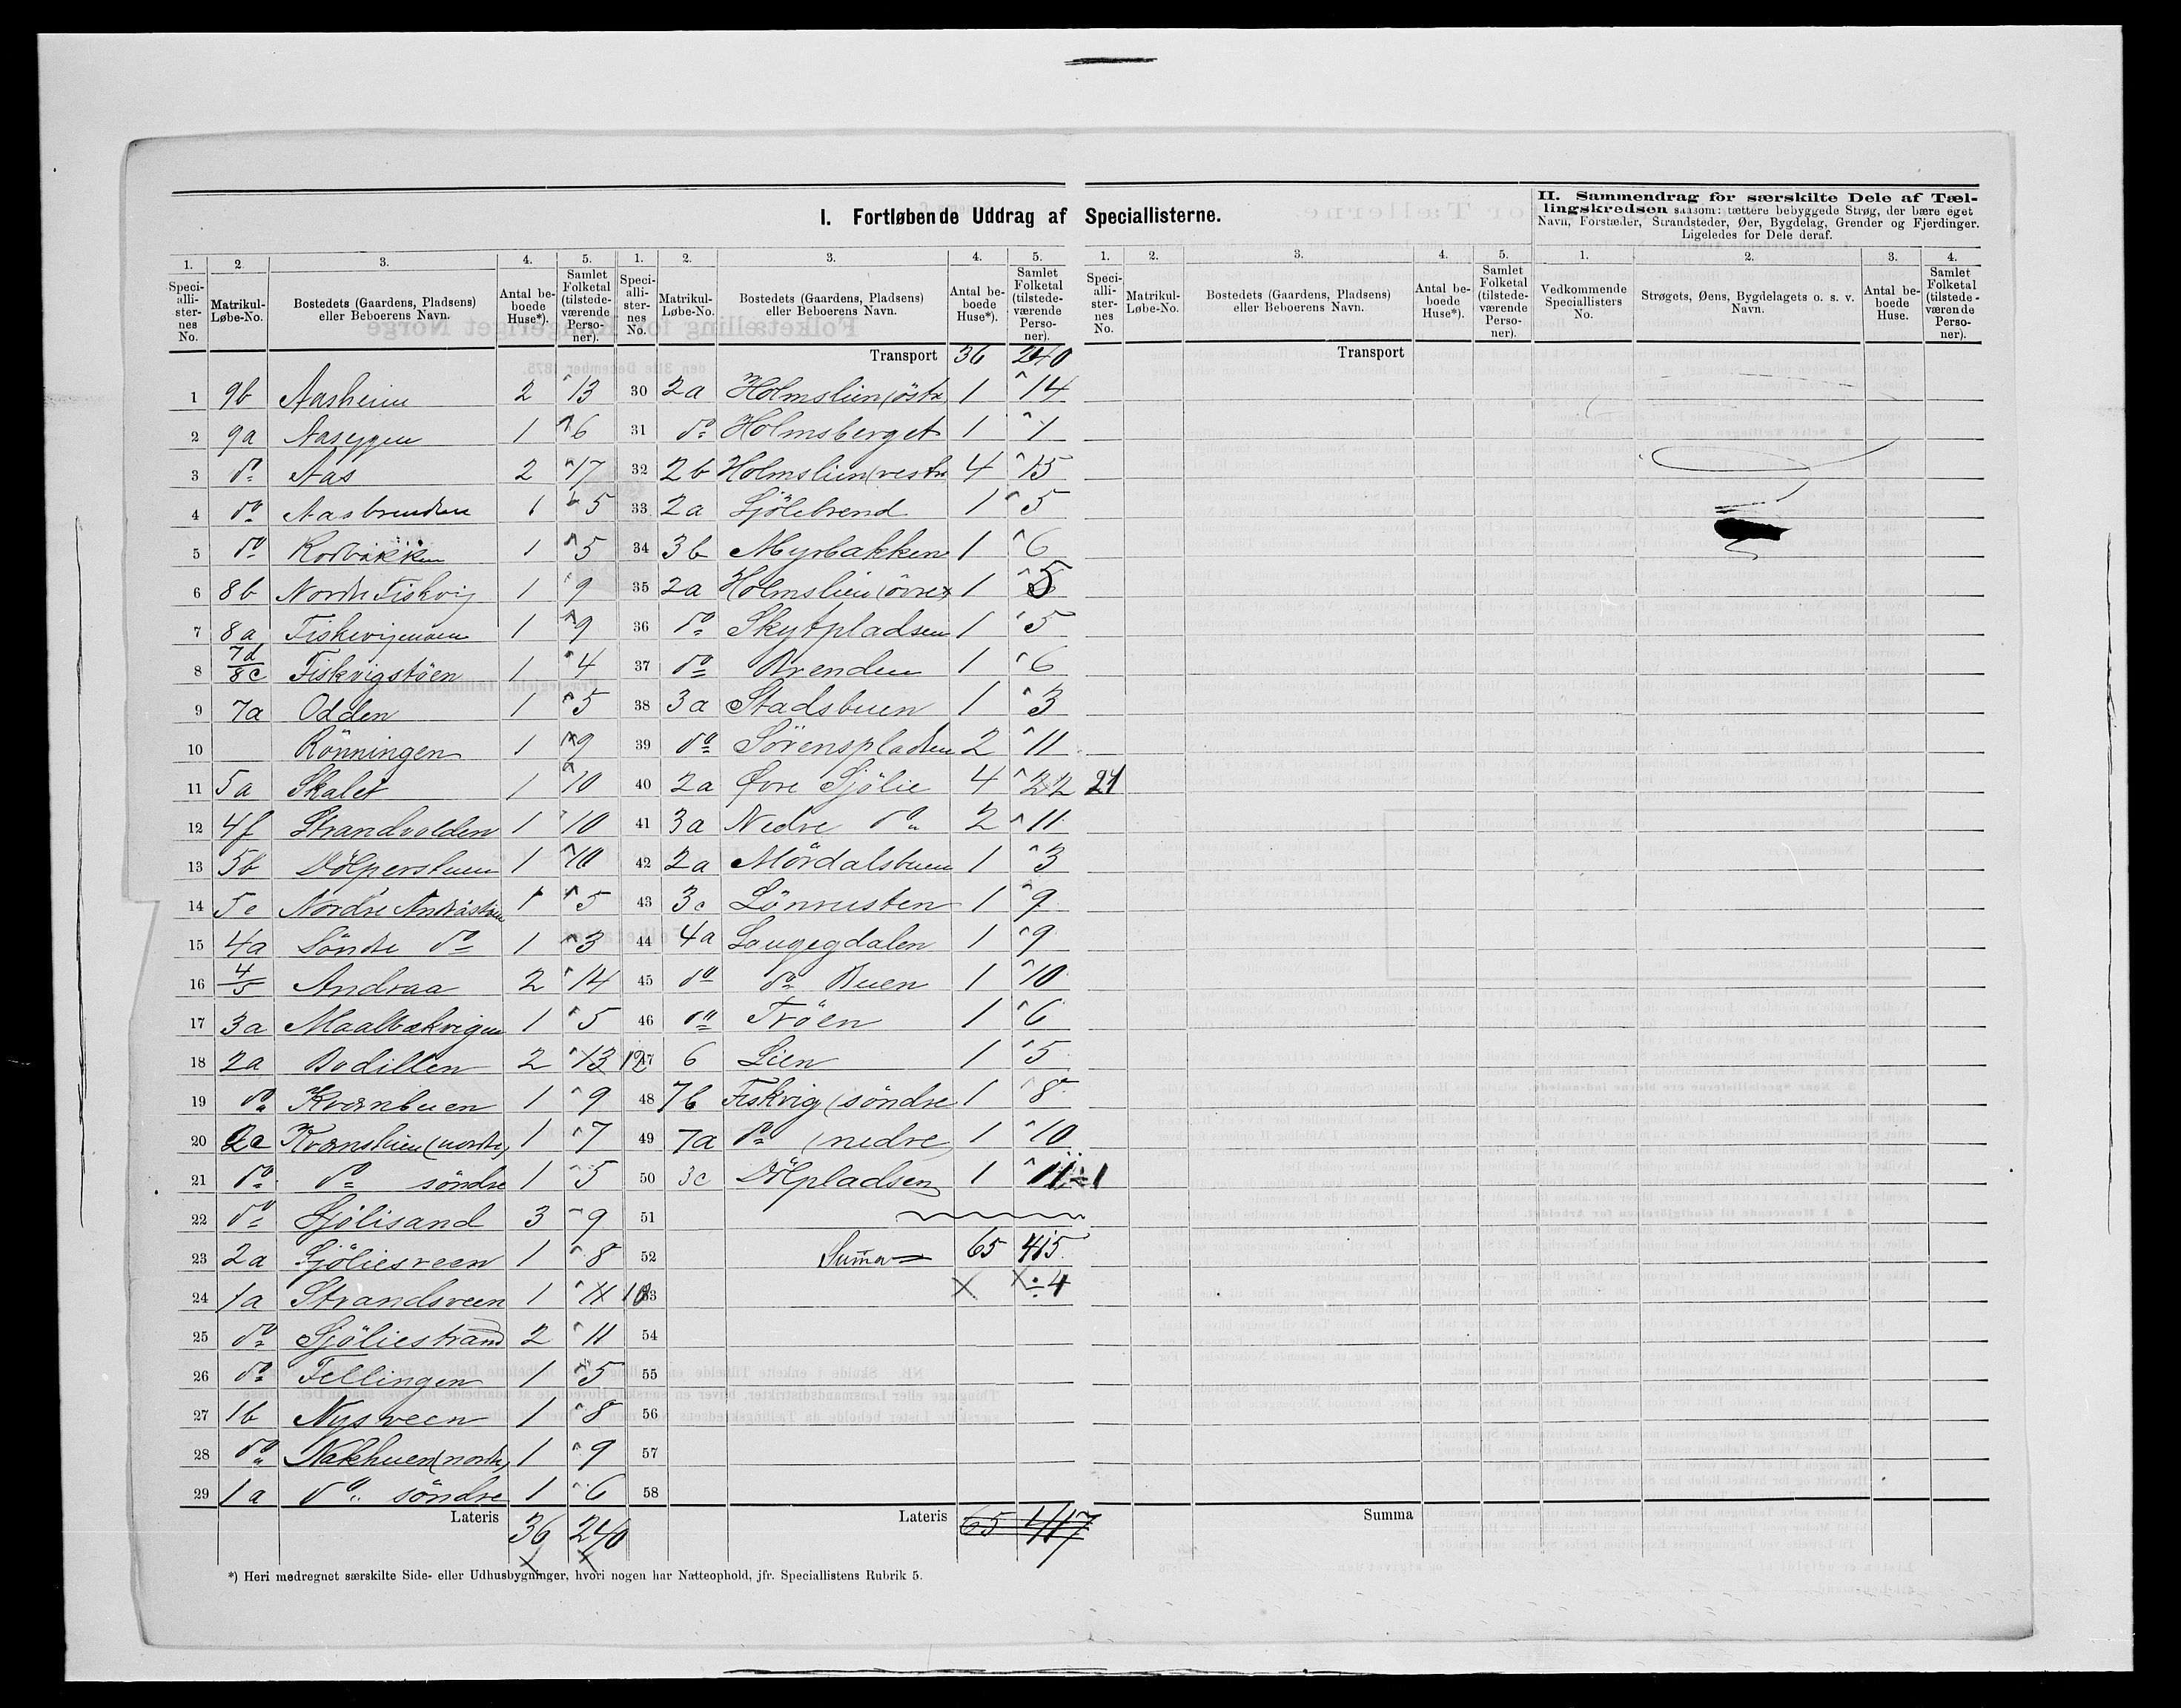 I. Fortløbende Uddrag af Speciallisterne.
II. Sammendrag for særskilte Dele af Tællingskredsen saasom: tættere bebyggede Strøg, der bære eget
Navn, Forstæder, Strandsteder, Øer, Bygdelag, Grender og Fjerdinger.
Ligeledes for Dele deraf.
1. 2. 3. 4. 5. 1. 2. 3. 4. 5. 1. 2. 3. 4. 5. 1. 2. 3. 4.
Speciallisternes No. Matrikul-Løbe-No. Bostedets (Gaardens, Pladsens) eller Beboerens Navn. Antal beboede Huse*). Samlet Folketal (tilstedeværende Personer).
Speciallisternes No. Matrikul-Løbe-No. Bostedets (Gaardens, Pladsens) eller Beboerens Navn. Antal beboede Huse*). Samlet Folketal (tilstedeværende Personer).
Speciallisternes No. Matrikul-Løbe-No. Bostedets (Gaardens, Pladsens) eller Beboerens Navn. Antal beboede Huse*). Samlet Folketal (tilstedeværende Personer).
Vedkommende Speciallisters No. Strøgets, Øens, Bygdelagets o. s. v. Navn. Antal beboede Huse. Samlet Folketal (tilstedeværende Personer).
1 9b Aasheim 2 13
2 9a Aaseggen 1 6
3 do Aas 2 17
4 do Aasbrenden 1 5
5 do Kolbakken 1 5
6 8b Nordre Fiskvig 1 9
7 8a Fiskevigmoen 1 9
8 7d/8c Fiskvigstöen 1 4
9 7a Odden 1 5
10 Rönningen 1 9
11 5a Skalet 1 10
12 4f Strandvolden 1 10
13 5b Dölperstuen 1 10
14 5c Nordre Andråstuen 1 5
15 4a Söndre do 1 3
16 4/5 Andraa 2 14
17 3a Maalbækvigen 1 5
18 2a Bodillen 2 13 12
19 do Kværnbuen 1 9
20 2c Kværnsliien (nordre) 1 7
21 do do söndre 1 5
22 do Sjölisand 3 9
23 2a Sjöliesveen 1 8
24 1a Strandsveen 1 11 10
25 do Sjöliestrand 2 11
26 do Fellingen 1 5
27 1b Nysveen 1 8
28 do Nakhuen (nordre) 1 9
29 1a do söndre 1 6
Lateris 36 240
Transport 36 240
30 2a Holmslien (östre 1 14
31 do Holmsberget 1 1
32 2b Holmslien (vestre 4 15
33 2a Sjölibrend 1 5
34 3b Myrbakken 1 6
35 2a Holmslien (övre) 1 5
36 do Skytpladsen 1 5
37 do Brenden 1 6
38 3a Stadsbuen 1 3
39 do Sörenspladsen 2 11
40 2a Øvre Sjölie 4 22 21
41 3a Nedre do 2 11
42 2a Mördalsbuen 1 3
43 3c Lönrusten 1 9
44 4a Laugegdalen 1 9
45 do do Buen 1 10
46 do Tröen 1 6
47 6 Lien 1 5
48 7b Fiskvig (söndre 1 8
49 7a do (nedre) 1 10
50 3c Dölpladsen 1 11 ÷1
51
52 Summa 65 415
53 ÷4
54
55
56
57
58
Lateris 65 417
Transport
Summa
*) Heri medregnet særskilte Side- eller Udhusbygninger, hvori nogen har Natteophold, jfr. Speciallistens Rubrik 5.